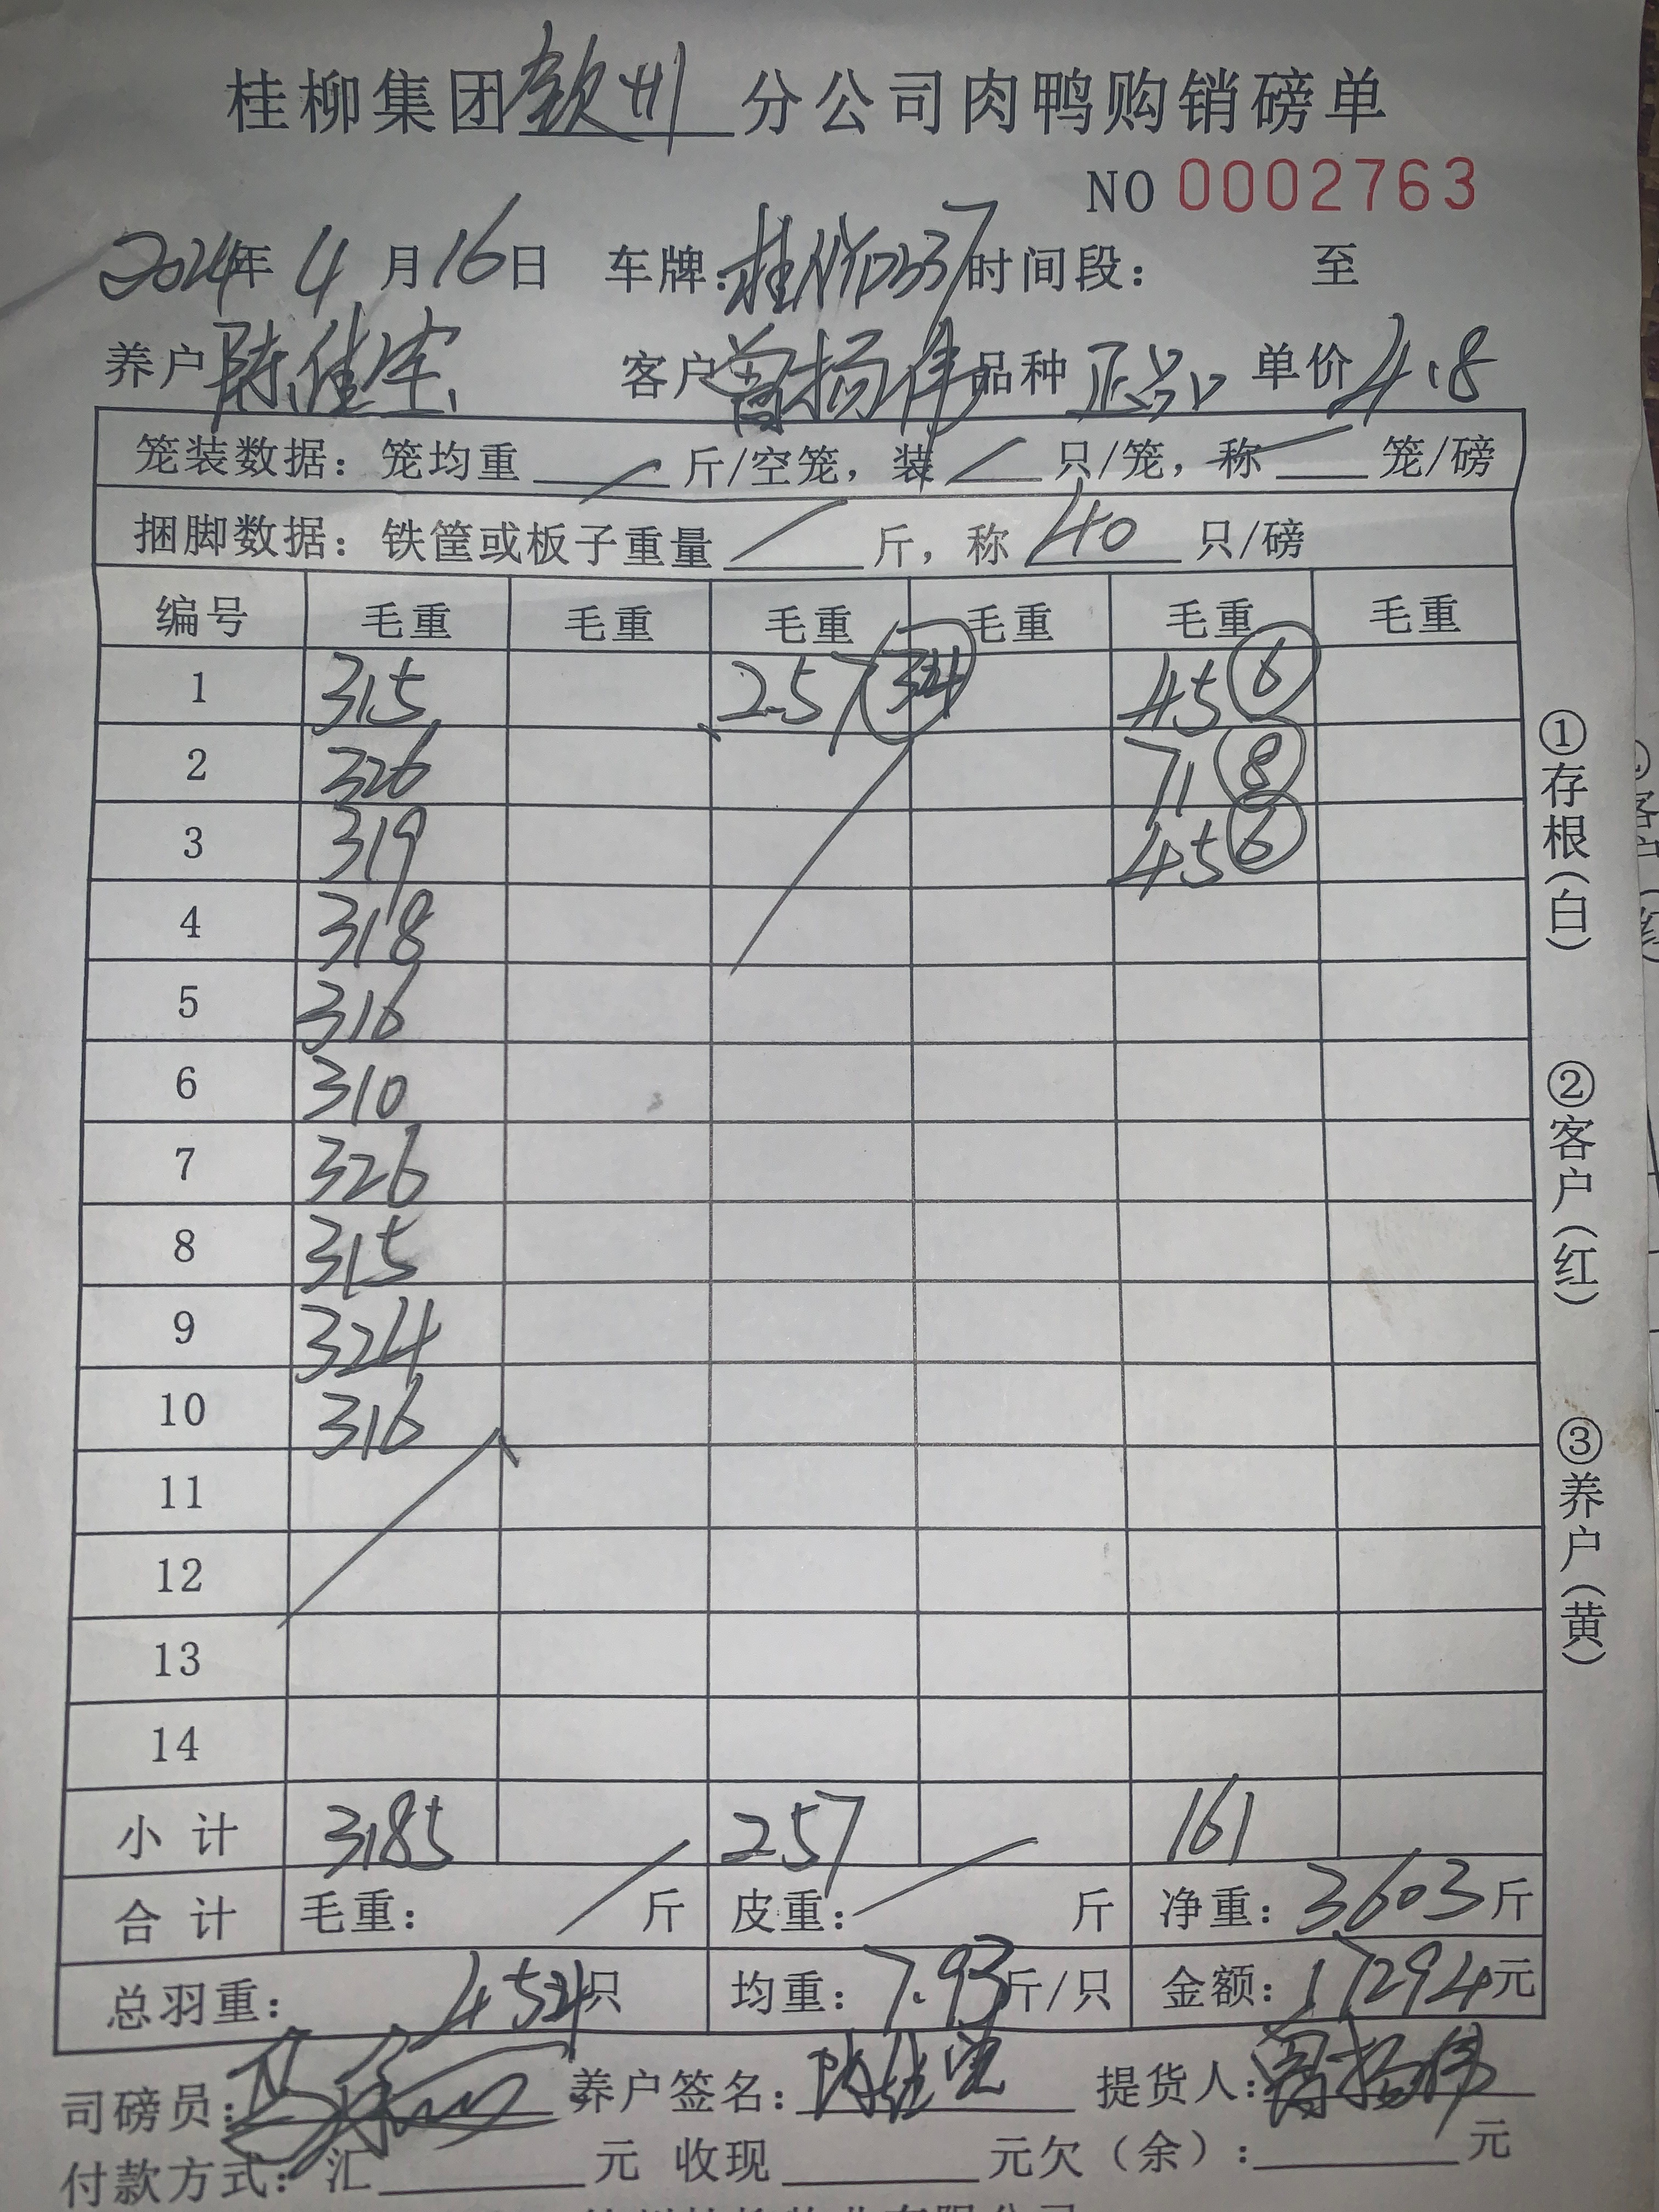 桂柳集团钦州分公司肉鸭购销磅单
NO 0002763
2024年 4月16日 车牌:桂 D337 时间段: 至
养户 陈佳宝 客户 曾扬伟 品种 正品 单价 4.8
笼装数据: 笼均重 / 斤/空笼, 装 / 只/笼, 称 / 笼/磅
捆脚数据: 铁筐或板子重量 / 斤, 称 40 只/磅
编号 毛重 毛重 毛重 毛重 毛重 毛重
1 315 257 34 45 6
2 326 71 8
3 319 45 6
4 318
5 316
6 310
7 326
8 315
9 324
10 316
11
12
13
14
小计 3185 257 161
合计 毛重: / 斤 皮重: / 斤 净重: 3603 斤
总羽重: 454 只 均重: 7.93 斤/只 金额: 17294 元
司磅员: 养户签名: 陈佳宝 提货人: 曾扬伟
付款方式: 汇 元 收现 元 欠(余): 元
①存根(白)
②客户(红)
③养户(黄)